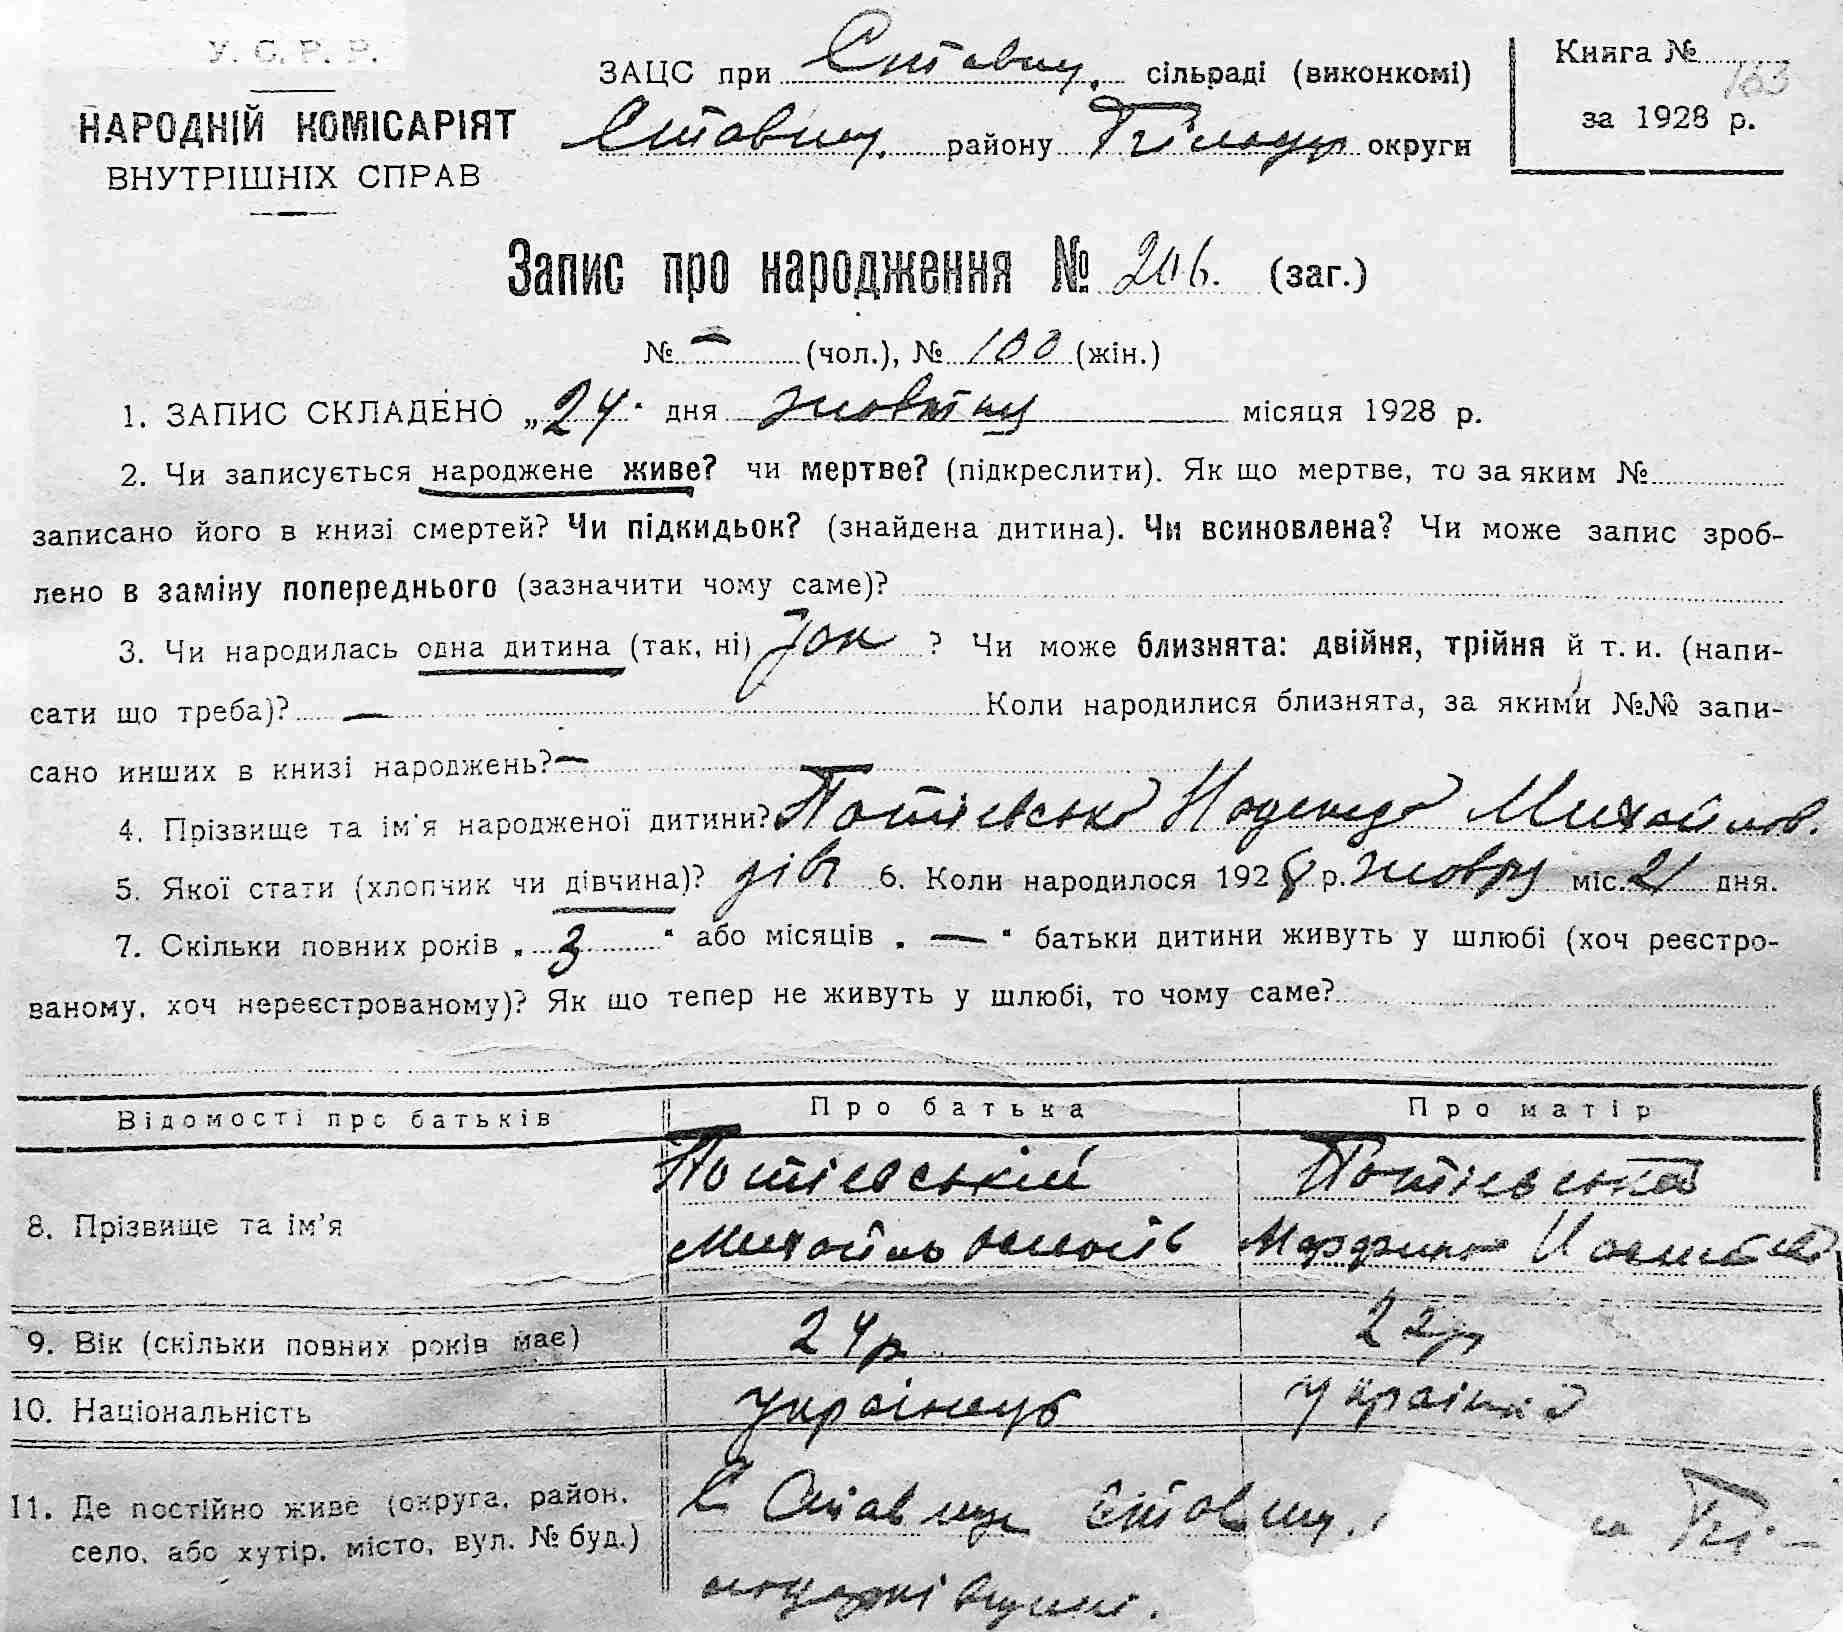 У. С. Р. Р.
НАРОДНІЙ КОМІСАРІЯТ
ВНУТРІШНІХ СПРАВ
ЗАЦС при Ставищ. сільраді (виконкомі)
Ставищ. району Білоцер округи
Книга № 163
за 1928 р.
Запис про народження № 206. (заг.)
№ — (чол.), № 100 (жін.)
1. ЗАПИС СКЛАДЕНО „24" дня жовтня місяця 1928 р.
2. Чи записується народжене живе? чи мертве? (підкреслити). Як що мертве, то за яким №
записано його в книзі смертей? Чи підкидьок? (знайдена дитина). Чи всиновлена? Чи може запис зроб-
лено в заміну попереднього (зазначити чому саме)?
3. Чи народилась одна дитина (так, ні) так ? Чи може близнята: двійня, трійня й т. и. (напи-
сати що треба)? — Коли народилися близнята, за якими №№ запи-
сано инших в книзі народжень? —
4. Прізвище та ім'я народженої дитини? Потієвська Надежда Михайлов.
5. Якої стати (хлопчик чи дівчина)? дівч 6. Коли народилося 1928 р. жовтня міс. 21 дня.
7. Скільки повних років „ 3 " або місяців „ — " батьки дитини живуть у шлюбі (хоч реєстро-
ваному, хоч нереєстрованому)? Як що тепер не живуть у шлюбі, то чому саме?
Відомості про батьків Про батька Про матір
8. Прізвище та ім'я Потієвській Потієвська
Михайль
9. Вік (скільки повних років має) 24р 22р
10. Національність українець українка
11. Де постійно живе (округа, район, село, або хутір, місто, вул. № буд.) С Ставище Ставищ. на Бі-
лоцерківщині.